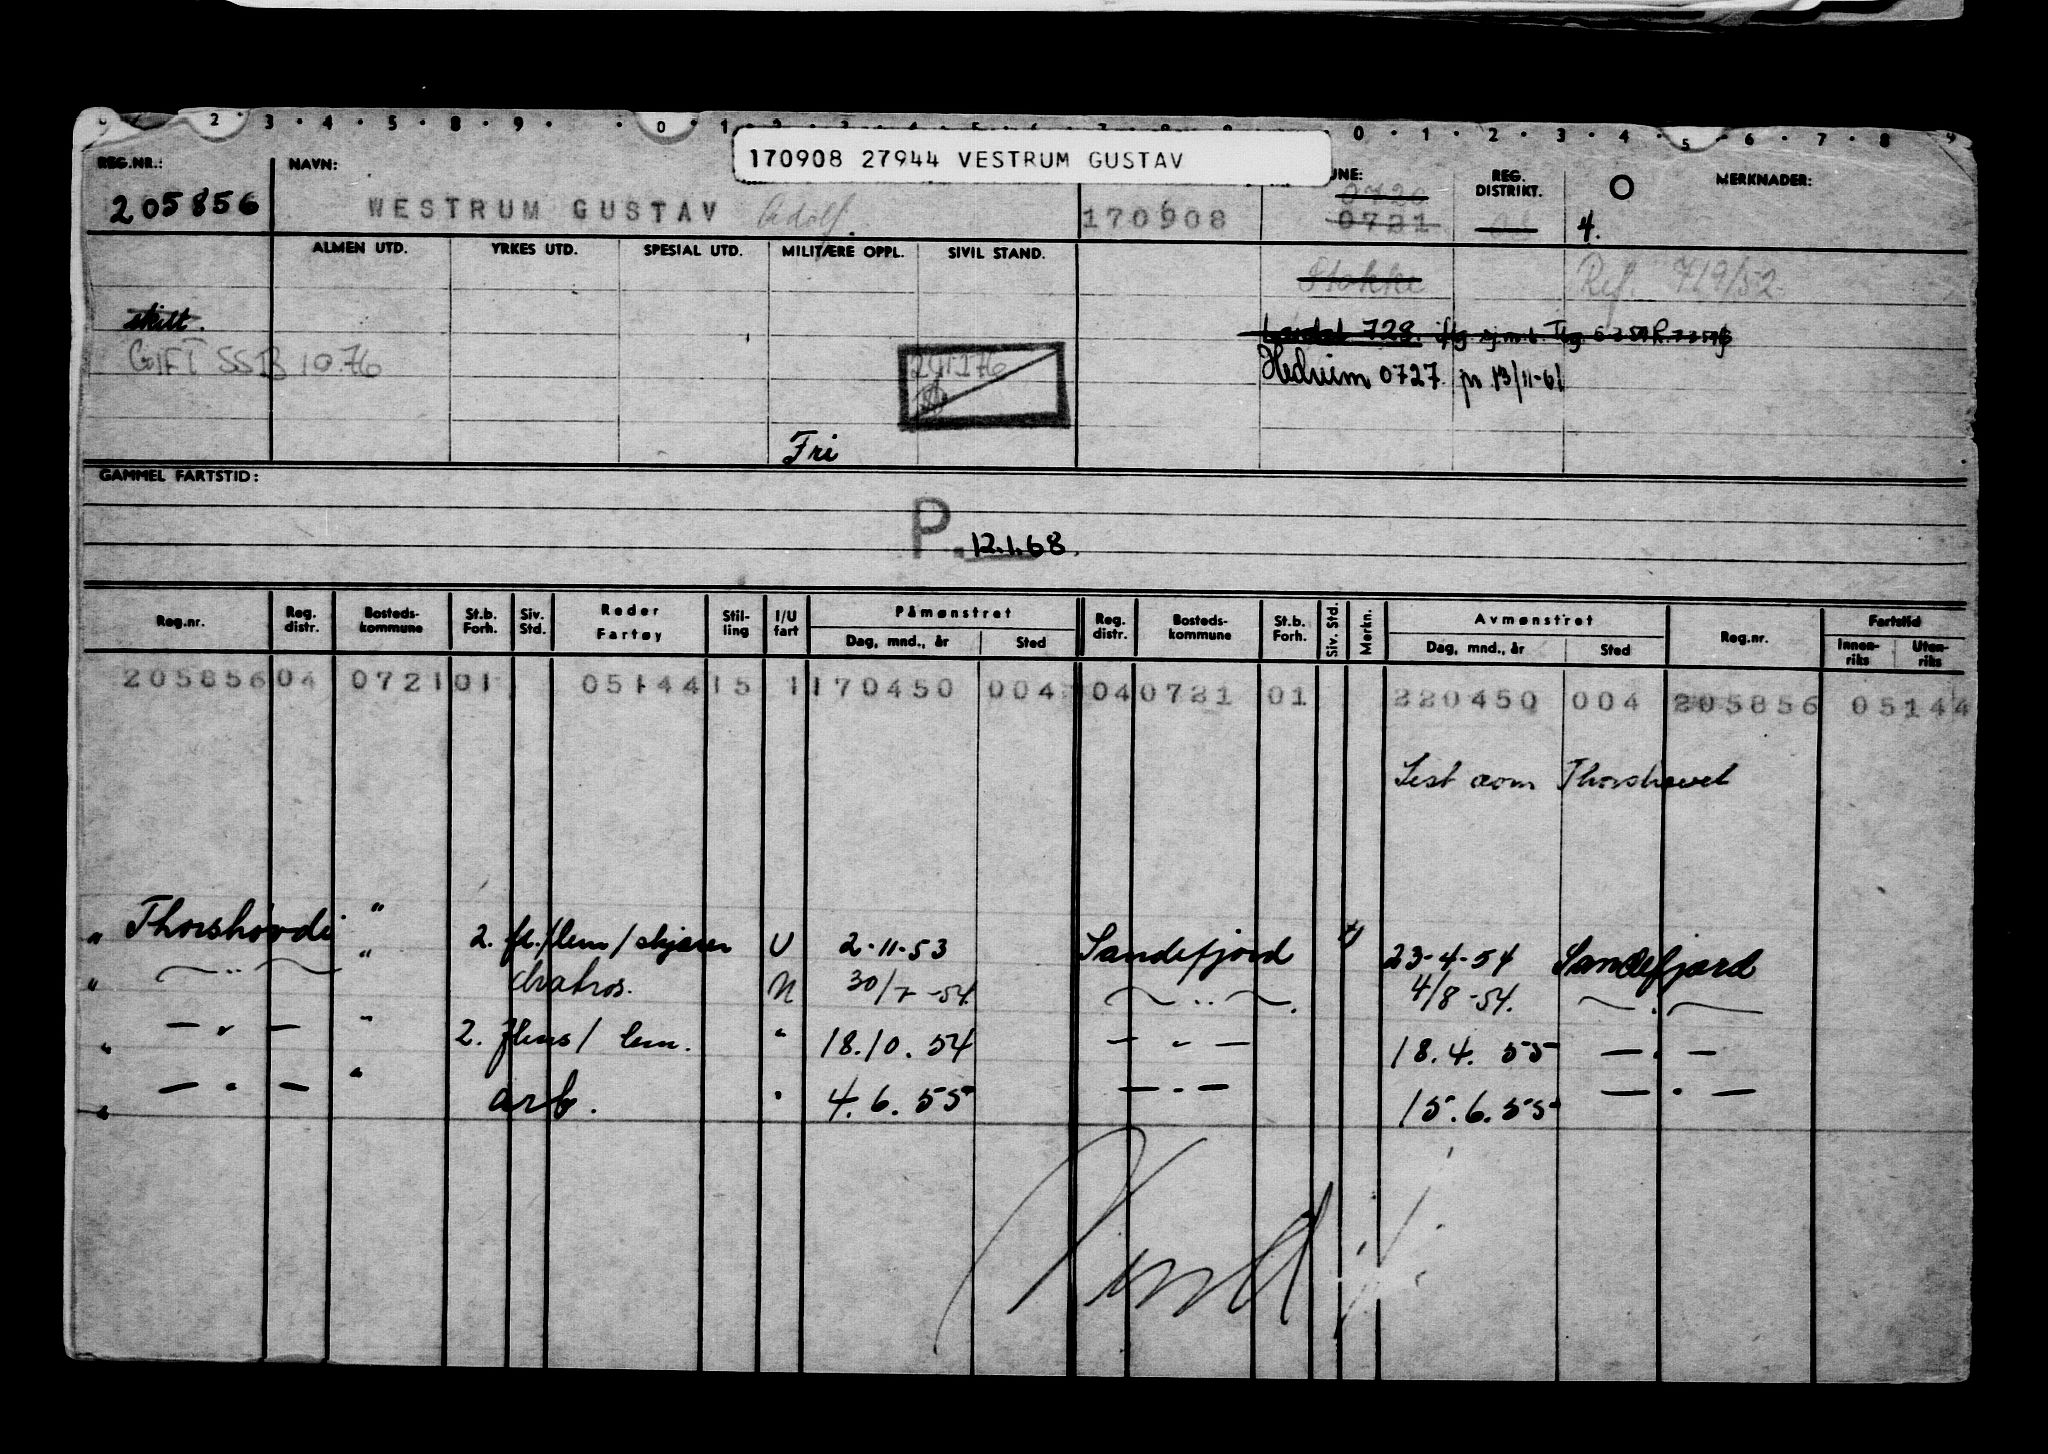 170908 27944 VESTRUM GUSTAV
REG.NR.: NAVN: UNE: REG. DISTRIKT. O MERKNADER:
205856 WESTRUM GUSTAV Adolf. 170908 0720 0721 4.
ALMEN UTD. YRKES UTD. SPESIAL UTD. MILITÆRE OPPL. SIVIL STAND.
Stokke Ref. 7/9/52
skilt. 728.
GIFT SSB 10 76
Hedrum 0727 pr 13/11-61
Fri
GAMMEL FARTSTID:
P. 12.1.68.
Reg.nr. Reg. distr. Bosteds-kommune St.b. Forh. Siv. Std. Reder Fartøy Stil-ling I/U fart Påmønstret Dag, mnd., år Sted Reg. distr. Bosteds-kommune St.b. Forh. Siv. Std. Merkn. Avmønstret Dag, mnd., år Sted Reg.nr. Fartstid Innen-riks Uten-riks
205856 04 0721 01 05144 15 1 170450 004 04 0721 01 220450 004 205856 05144
Lest som Thorshavet
" Thorshøvdi " 2. fl./lem/skjærer U 2-11-53 Sandefjord 23-4-54 Sandefjord
" — " — " Matros. N 30/7-54 — " — 4/8-54. — " —
" — " — " 2. flens/lem. " 18.10.54 — " — 18.4.55 — " —
" — " — " arb. " 4.6.55 — " — 15.6.55 — " —